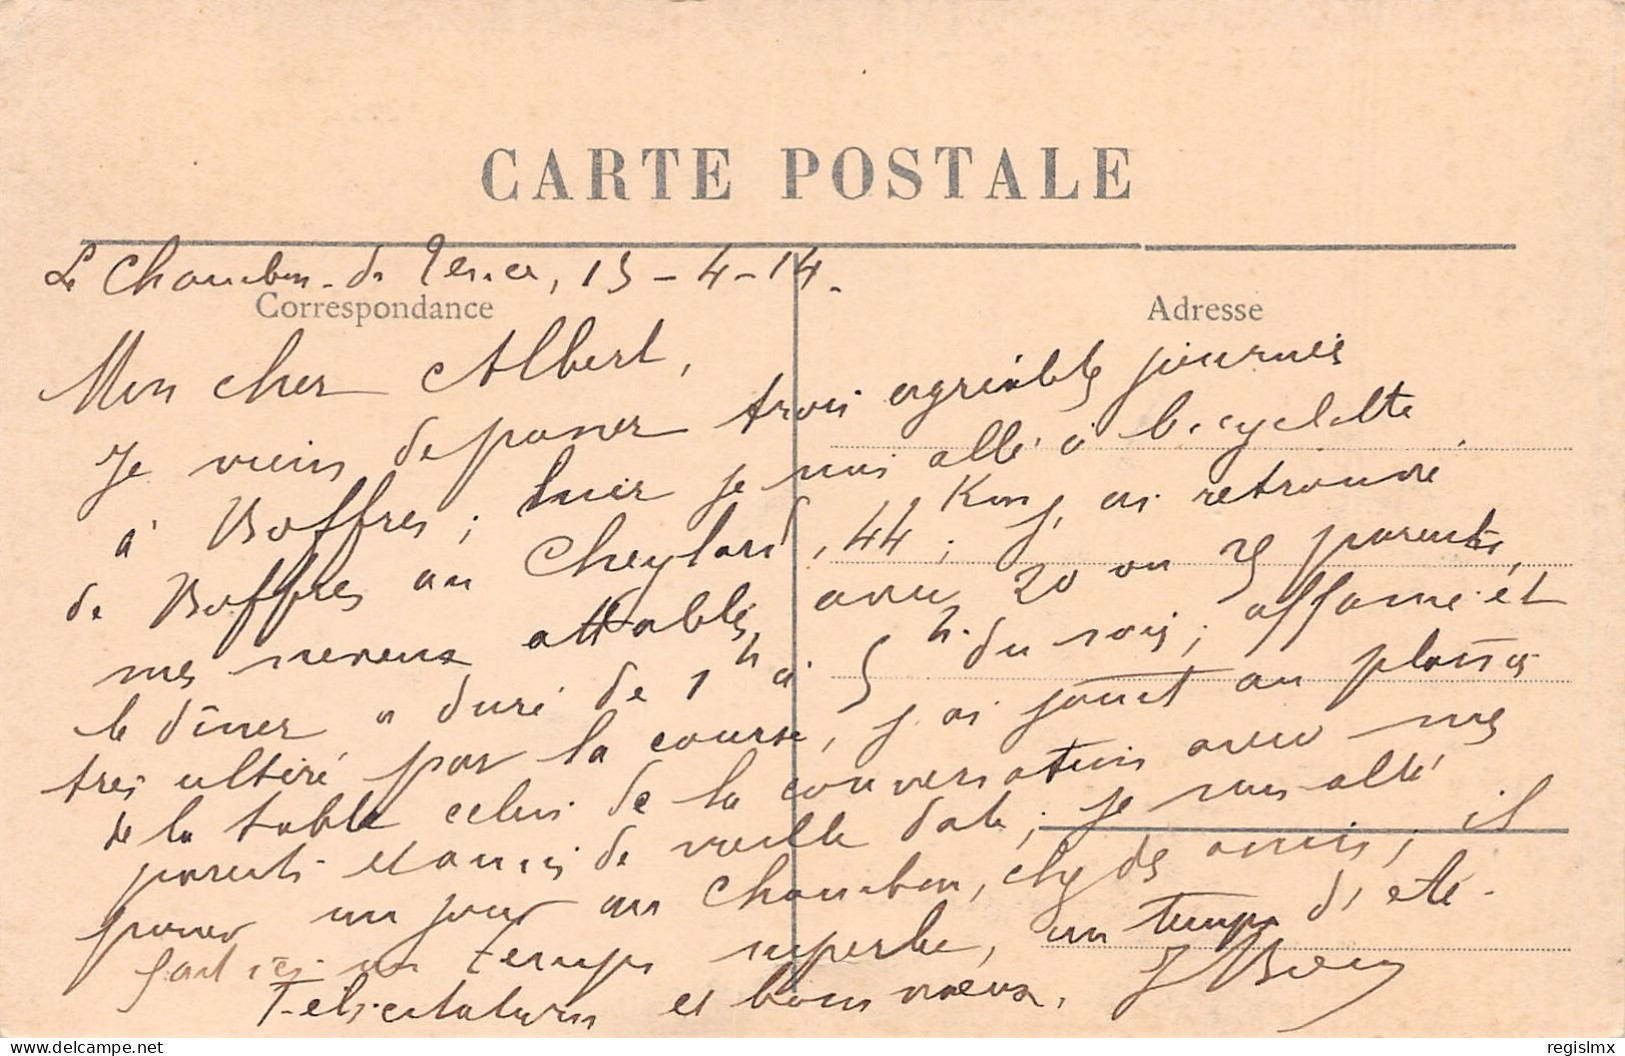 CARTE POSTALE
Le Chambon-de 13-4-14.
Correspondance
Adresse
Mon cher Albert,
Je viens de passer trois agréables journées
à Boffres ; hier je suis allé à bicyclette
de Boffres au Cheylard, 44 Km, j'ai retrouvé
mes neveux attablés, avec 20 ou 25 parents,
le dîner a duré de 1h à 5h du soir ; affamé et
très altéré par la course, j'ai joint au plaisir
de la table celui de la conversation avec mes
parents et amis de vieille date ; je suis allé
passer un jour au Chambon, chez des amis ; il
fait ici un temps superbe, un temps d'été.
Félicitations et bons vœux.
regislmx